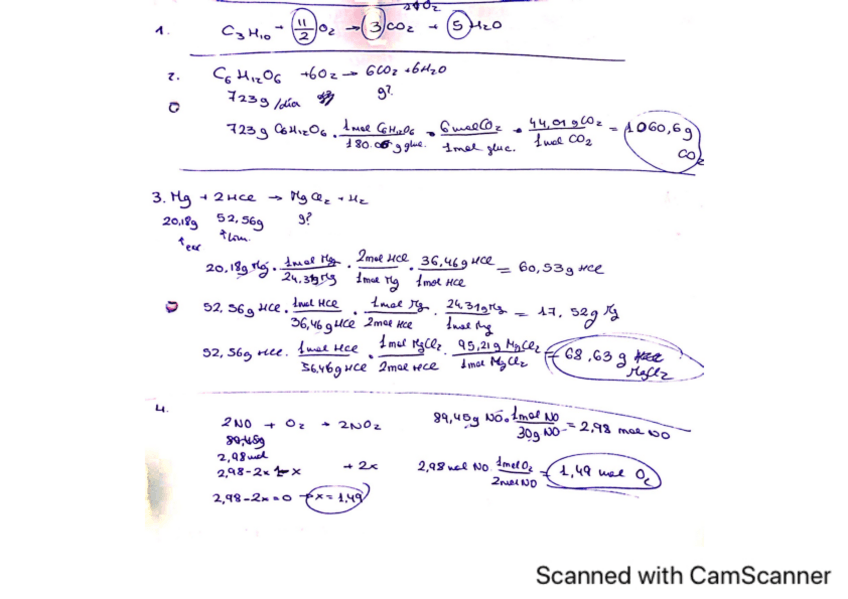 1. C3H10 + 11/2 O2 → 3 CO2 + 5 H2O
2. C6H12O6 + 6O2 → 6CO2 + 6H2O
723g/día g?
723g C6H12O6 · 1mol C6H12O6 / 180.06 g gluc. · 6molCO2 / 1mol gluc. · 44,01gCO2 / 1mol CO2 = 1060,6g CO2
3. Mg + 2HCl → MgCl2 + H2
20,18g 52,56g g?
↑exc ↑lim.
20,18g Mg · 1mol Mg / 24,31gMg · 2mol HCl / 1mol Mg · 36,46gHCl / 1mol HCl = 60,53g HCl
52,56g HCl · 1mol HCl / 36,46gHCl · 1mol Mg / 2mol HCl · 24,31gMg / 1mol Mg = 17,52g Mg
52,56g HCl · 1mol HCl / 36,46gHCl · 1mol MgCl2 / 2mol HCl · 95,21g MgCl2 / 1mol MgCl2 = 68,63g MgCl2
4.
2NO + O2 → 2NO2 89,45g NO · 1mol NO / 30g NO = 2,98 mol NO
89,45g
2,98mol
2,98-2x 1-x +2x 2,98mol NO · 1molO2 / 2molNO = 1,49 mol O2
2,98-2x=0 → x=1,49
Scanned with CamScanner